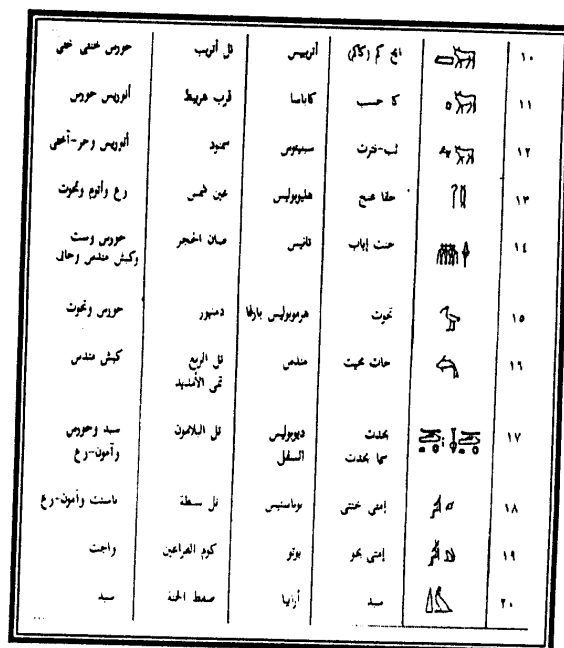 ١٠ اتح كم (كاكم) أتريبس تل أتريب حورس خنتى ختى
١١ كا حسب كاباسا قرب هربيط أنوريس حورس
١٢ ثب-نترت سبنيتوس سمنود أنوريس وحر-آختى
١٣ حقا عنج هليوبوليس عين شمس رع وأتوم وتحوت
١٤ خنت إياب تانيس صان الحجر حورس وست
وكبش مندس وحالى
١٥ تحوت هرموبوليس بارفا دمنهور حورس وتحوت
١٦ حات محيت مندس تل الربع كبش مندس
تمى الأمديد
١٧ بحدت ديوبوليس تل البلامون سبد وحورس
سما بحدت السفلى وآمون-رع
١٨ إمتى خنتى بوباستيس تل بسطة باستت وأمون-رع
١٩ إمتى بحو بوتو كوم الفراعين واجت
٢٠ سبد أرابيا صفط الحنة سبد